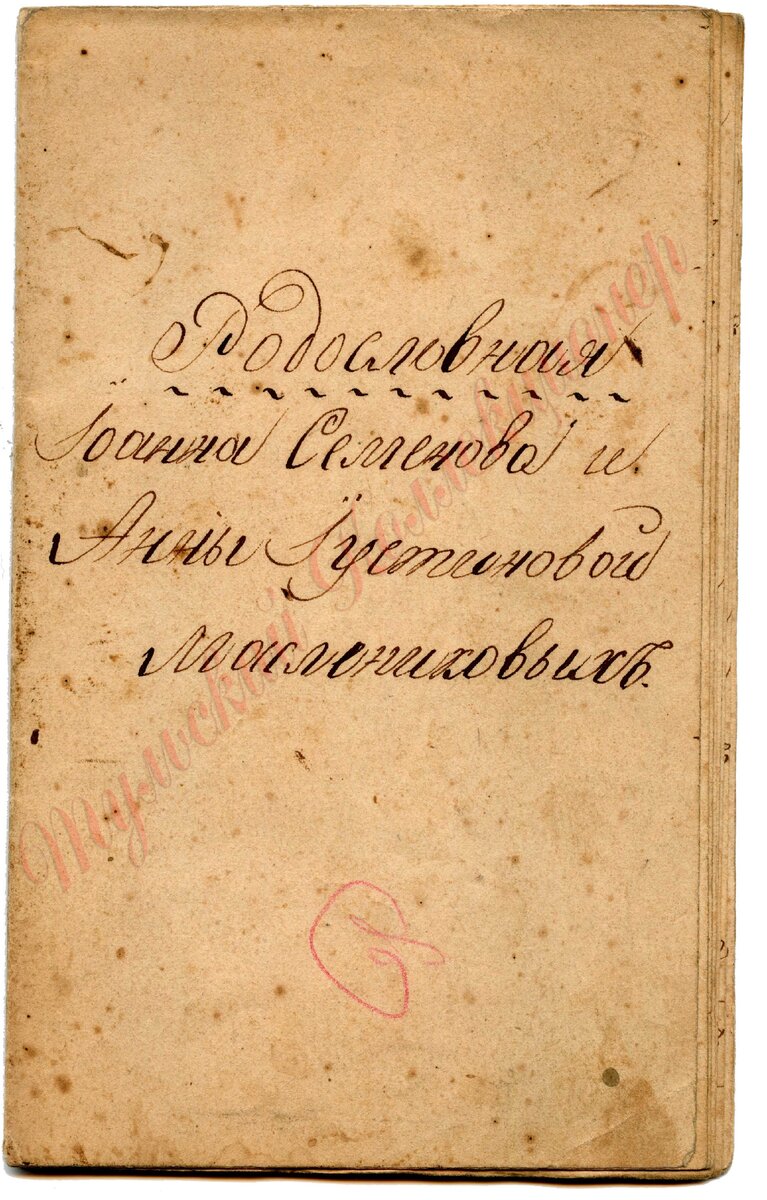 Родословная
Іоанна Семенова и
Анны Іустиновой
Маслениковыхъ.
Тульский Коллекционер